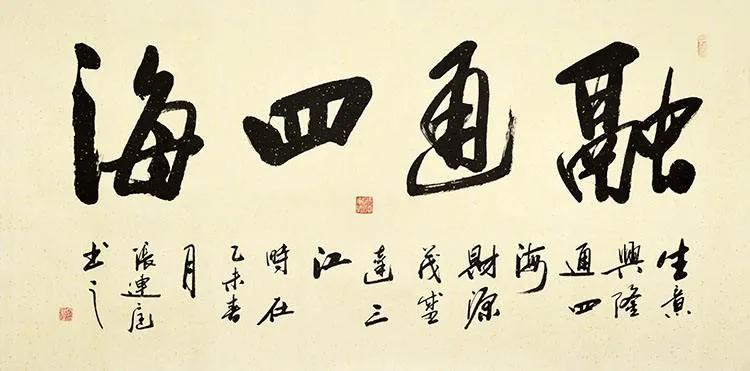 融通四海
生意
興隆
通四
海
財源
茂盛
達三
江
時在
乙未春
月
張連庭
书之